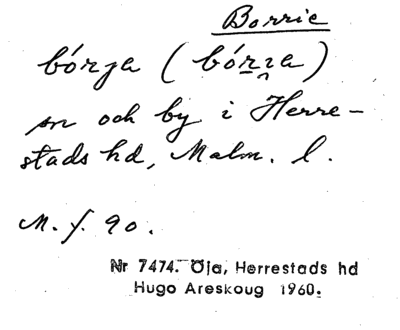 Borrie
bórja (bórıa)
sn och by i Herre-
stads hd, Malm. l.
M. f. 90.
Nr 7474. Öja, Herrestads hd
Hugo Areskoug 1960.